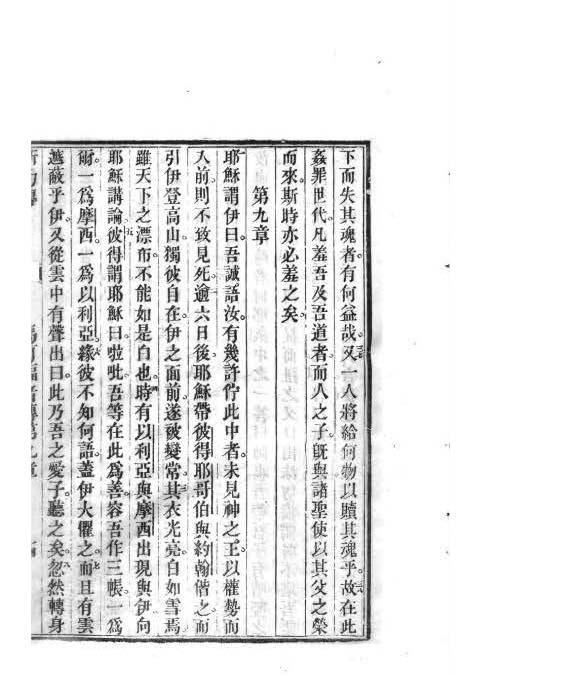 下而失其魂者有何益哉又一人將給何物以贖其魂乎故在此
姦罪世代凡羞吾及吾道者而人之子旣與諸聖使以其父之榮
而來斯時亦必羞之矣
第九章
耶穌謂伊曰吾誠語汝有幾許佇此中者未見神之王以權勢而
入前則不致見死逾六日後耶穌帶彼得耶哥伯與約翰偕之而
引伊登高山獨彼自在伊之面前遂被變常其衣光亮白如雪焉
雖天下之漂布不能如是白也時有以利亞與摩西出現與伊向
耶穌講論彼得謂耶穌曰啦吡吾等在此爲善容吾作三帳一爲
爾一爲摩西一爲以利亞緣彼不知何語蓋伊大懼之而且有雲
遮蔽乎伊又從雲中有聲出曰此乃吾之愛子聽之矣忽然轉身